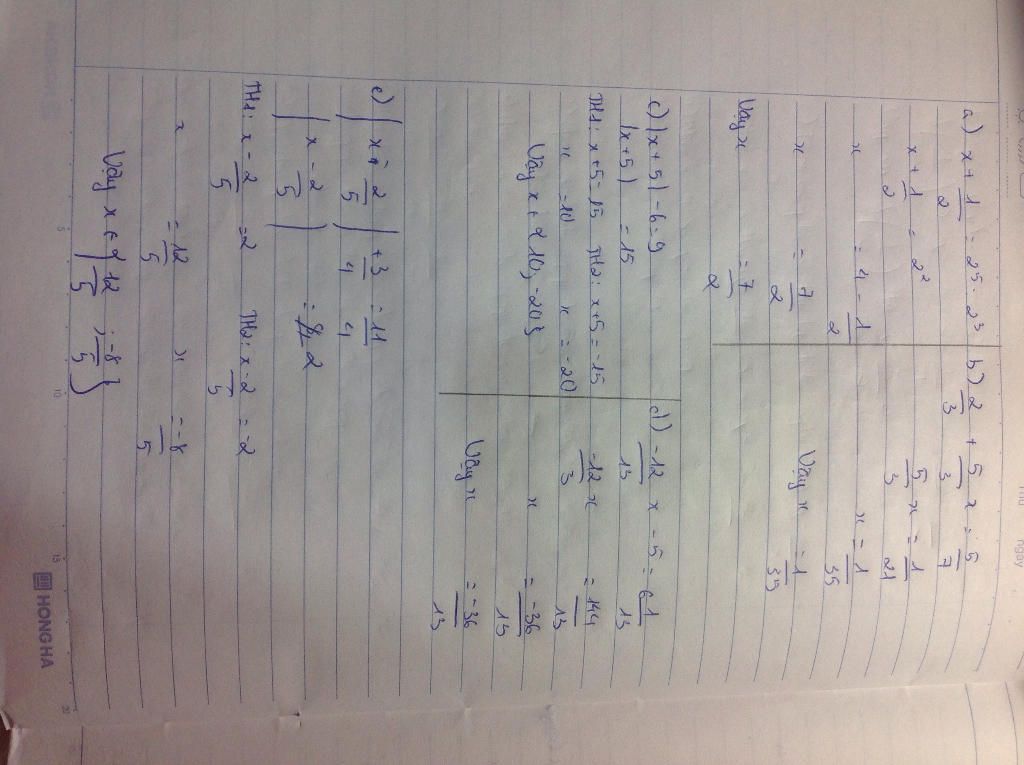 a) x + 1/2 = 2⁵ : 2³
x + 1/2 = 2²
x = 4 - 1/2
x = 7/2
Vậy x = 7/2
b) 2/3 + 5/3 x = 5/7
5/3 x = 1/21
x = 1/35
Vậy x = 1/35
c) |x + 5| - 6 = 9
|x + 5| = 15
TH1: x + 5 = 15 TH2: x + 5 = -15
x = 10 x = -20
Vậy x ∈ {10; -20}
d) -12/13 x - 5 = 6 1/13
-12/3 x = 144/13
x = -36/13
Vậy x = -36/13
e) | x - 2/5 | + 3/4 = 11/4
| x - 2/5 | = 2
TH1: x - 2/5 = 2 TH2: x - 2/5 = -2
x = 12/5 x = -8/5
Vậy x ∈ { 12/5 ; -8/5 }
HONG HA